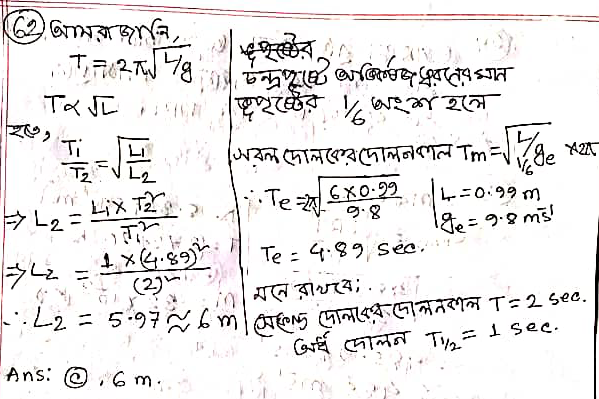 62 আমরা জানি,
T = 2π√L/g
T ∝ √L
হতে,
T₁/T₂ = √L₁/L₂
⇒ L₂ = L₁ × T₂²/T₁²
⇒ L₂ = 1 × (4.89)²/(2)²
∴ L₂ = 5.97 ≈ 6 m
Ans: ⓒ, 6 m.
চন্দ্রপৃষ্ঠে অভিকর্ষজ ত্বরনের মান
ভূপৃষ্ঠের 1/6 অংশ হলে
সরল দোলকের দোলনকাল Tm = √L/1/6 ge × 2π
∴ Te = 2π√6×0.99/9.8
L = 0.99 m
ge = 9.8 ms⁻
Te = 4.89 sec.
মনে রাখবে;
সেকেন্ড দোলকের দোলনকাল T = 2 sec.
অর্ধ দোলন T½ = 1 sec.